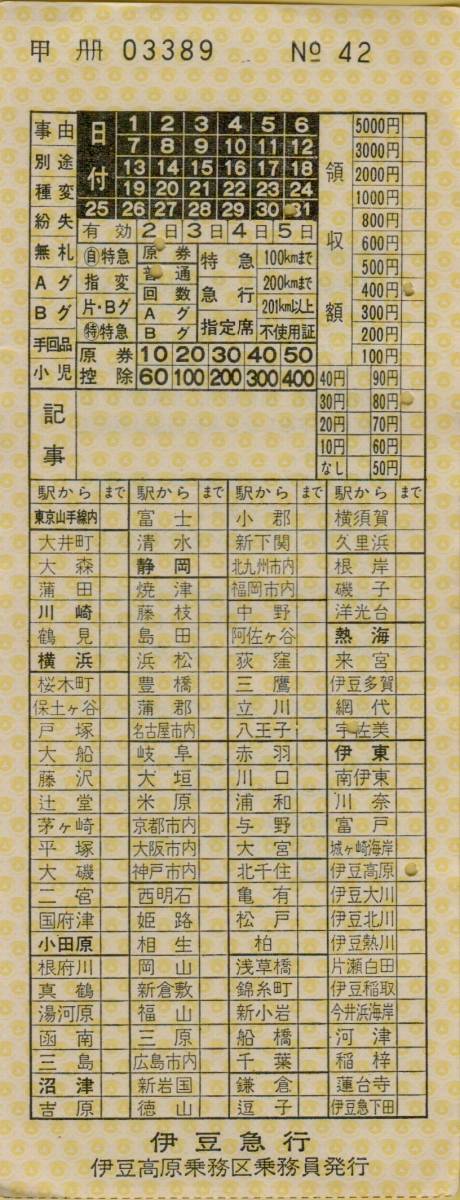 甲 册 03389 No 42
事由 日付 1 2 3 4 5 6 領収額 5000円
別途 7 8 9 10 11 12 3000円
種変 13 14 15 16 17 18 2000円
紛失 19 20 21 22 23 24 1000円
25 26 27 28 29 30 31 800円
無札 有効 2日 3日 4日 5日 600円
Aグ ㊞特急 原券 特急 100kmまで 500円
Bグ 指変 普通 急行 200kmまで 400円
手回品 片・Bグ 回数 指定席 201km以上 300円
小児 ㊕特急 Aグ 不使用証 200円
Bグ 100円
原券 10 20 30 40 50 40円 90円
控除 60 100 200 300 400 30円 80円
記事 20円 70円
10円 60円
なし 50円
駅から まで 駅から まで 駅から まで 駅から まで
東京山手線内 富士 小郡 横須賀
大井町 清水 新下関 久里浜
大森 静岡 北九州市内 根岸
蒲田 焼津 福岡市内 磯子
川崎 藤枝 中野 洋光台
鶴見 島田 阿佐ヶ谷 熱海
横浜 浜松 荻窪 来宮
桜木町 豊橋 三鷹 伊豆多賀
保土ヶ谷 蒲郡 立川 網代
戸塚 名古屋市内 八王子 宇佐美
大船 岐阜 赤羽 伊東
藤沢 大垣 川口 南伊東
辻堂 米原 浦和 川奈
茅ヶ崎 京都市内 与野 富戸
平塚 大阪市内 大宮 城ヶ崎海岸
大磯 神戸市内 北千住 伊豆高原
二宮 西明石 亀有 伊豆大川
国府津 姫路 松戸 伊豆北川
小田原 相生 柏 伊豆熱川
根府川 岡山 浅草橋 片瀬白田
真鶴 新倉敷 錦糸町 伊豆稲取
湯河原 福山 新小岩 今井浜海岸
函南 三原 船橋 河津
三島 広島市内 千葉 稲梓
沼津 新岩国 鎌倉 蓮台寺
吉原 徳山 逗子 伊豆急下田
伊豆急行
伊豆高原乗務区乗務員発行